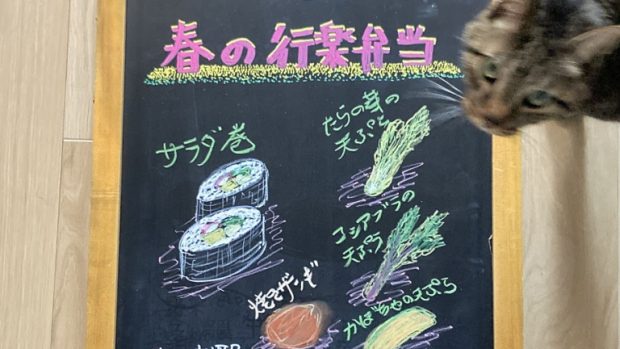 春の行楽弁当
サラダ巻
たらの芽の
天ぷら
コシアブラの
天ぷら
焼きザンギ
かぼちゃの天ぷら